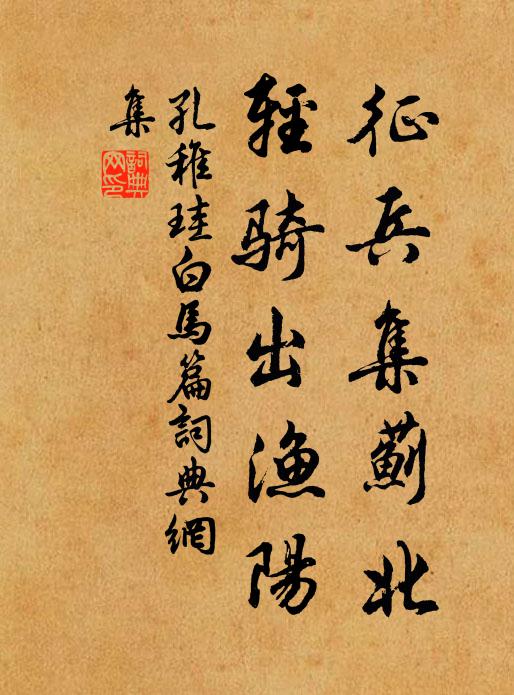 征兵集薊北
輕騎出漁陽
孔稚珪白馬篇詞典網
集
詞典
网印